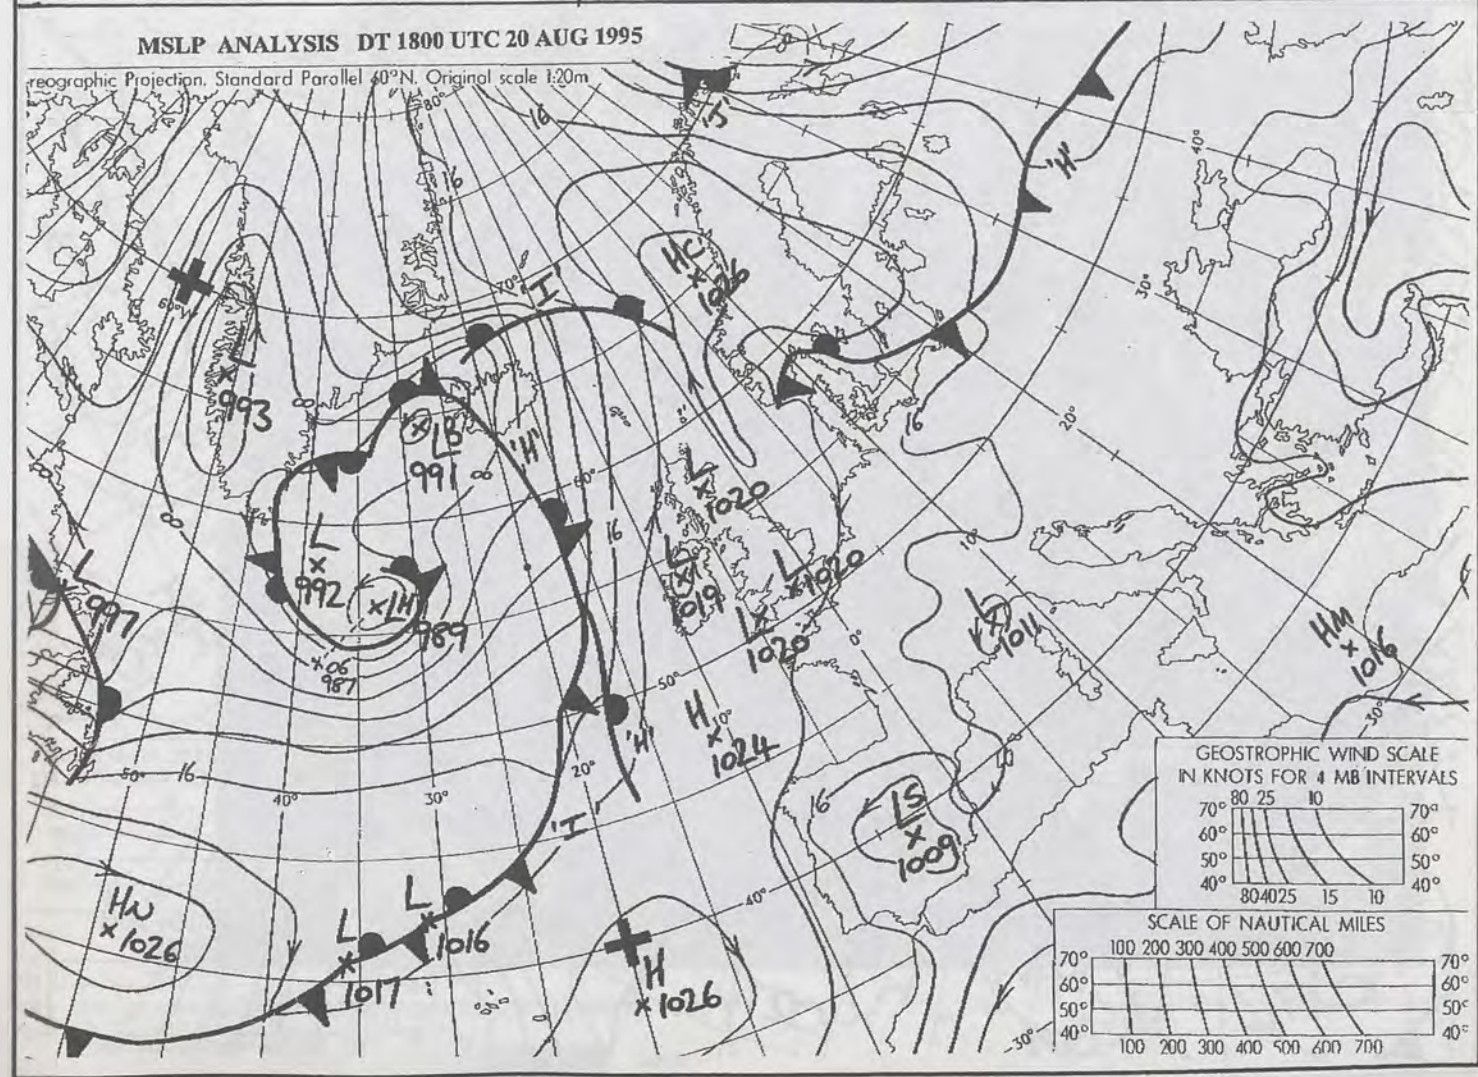 MSLP ANALYSIS DT 1800 UTC 20 AUG 1995
reographic Projection. Standard Parallel 60°N. Original scale 1:20m
80°
16
'J'
16
'H'
40°
HC
1026
60°W
70°
'I'
30°
L
993
LB
991
8
'H'
60°
16
20°
L
1020
16
8
L
992
LH
989
L
997
+06
987
L
1019
L
1020
L
1020
10°
0°
L
1011
HM
1016
50°
10°
H
1024
'H'
30°
50°
16
20°
40°
30°
'I'
16
LS
1009
40°
HW
1026
L
1017
L
1016
H
1026
30°
GEOSTROPHIC WIND SCALE
IN KNOTS FOR 4 MB INTERVALS
80 25 10
70° 70°
60° 60°
50° 50°
40° 40°
80 40 25 15 10
SCALE OF NAUTICAL MILES
100 200 300 400 500 600 700
70° 70°
60° 60°
50° 50°
40° 40°
100 200 300 400 500 600 700